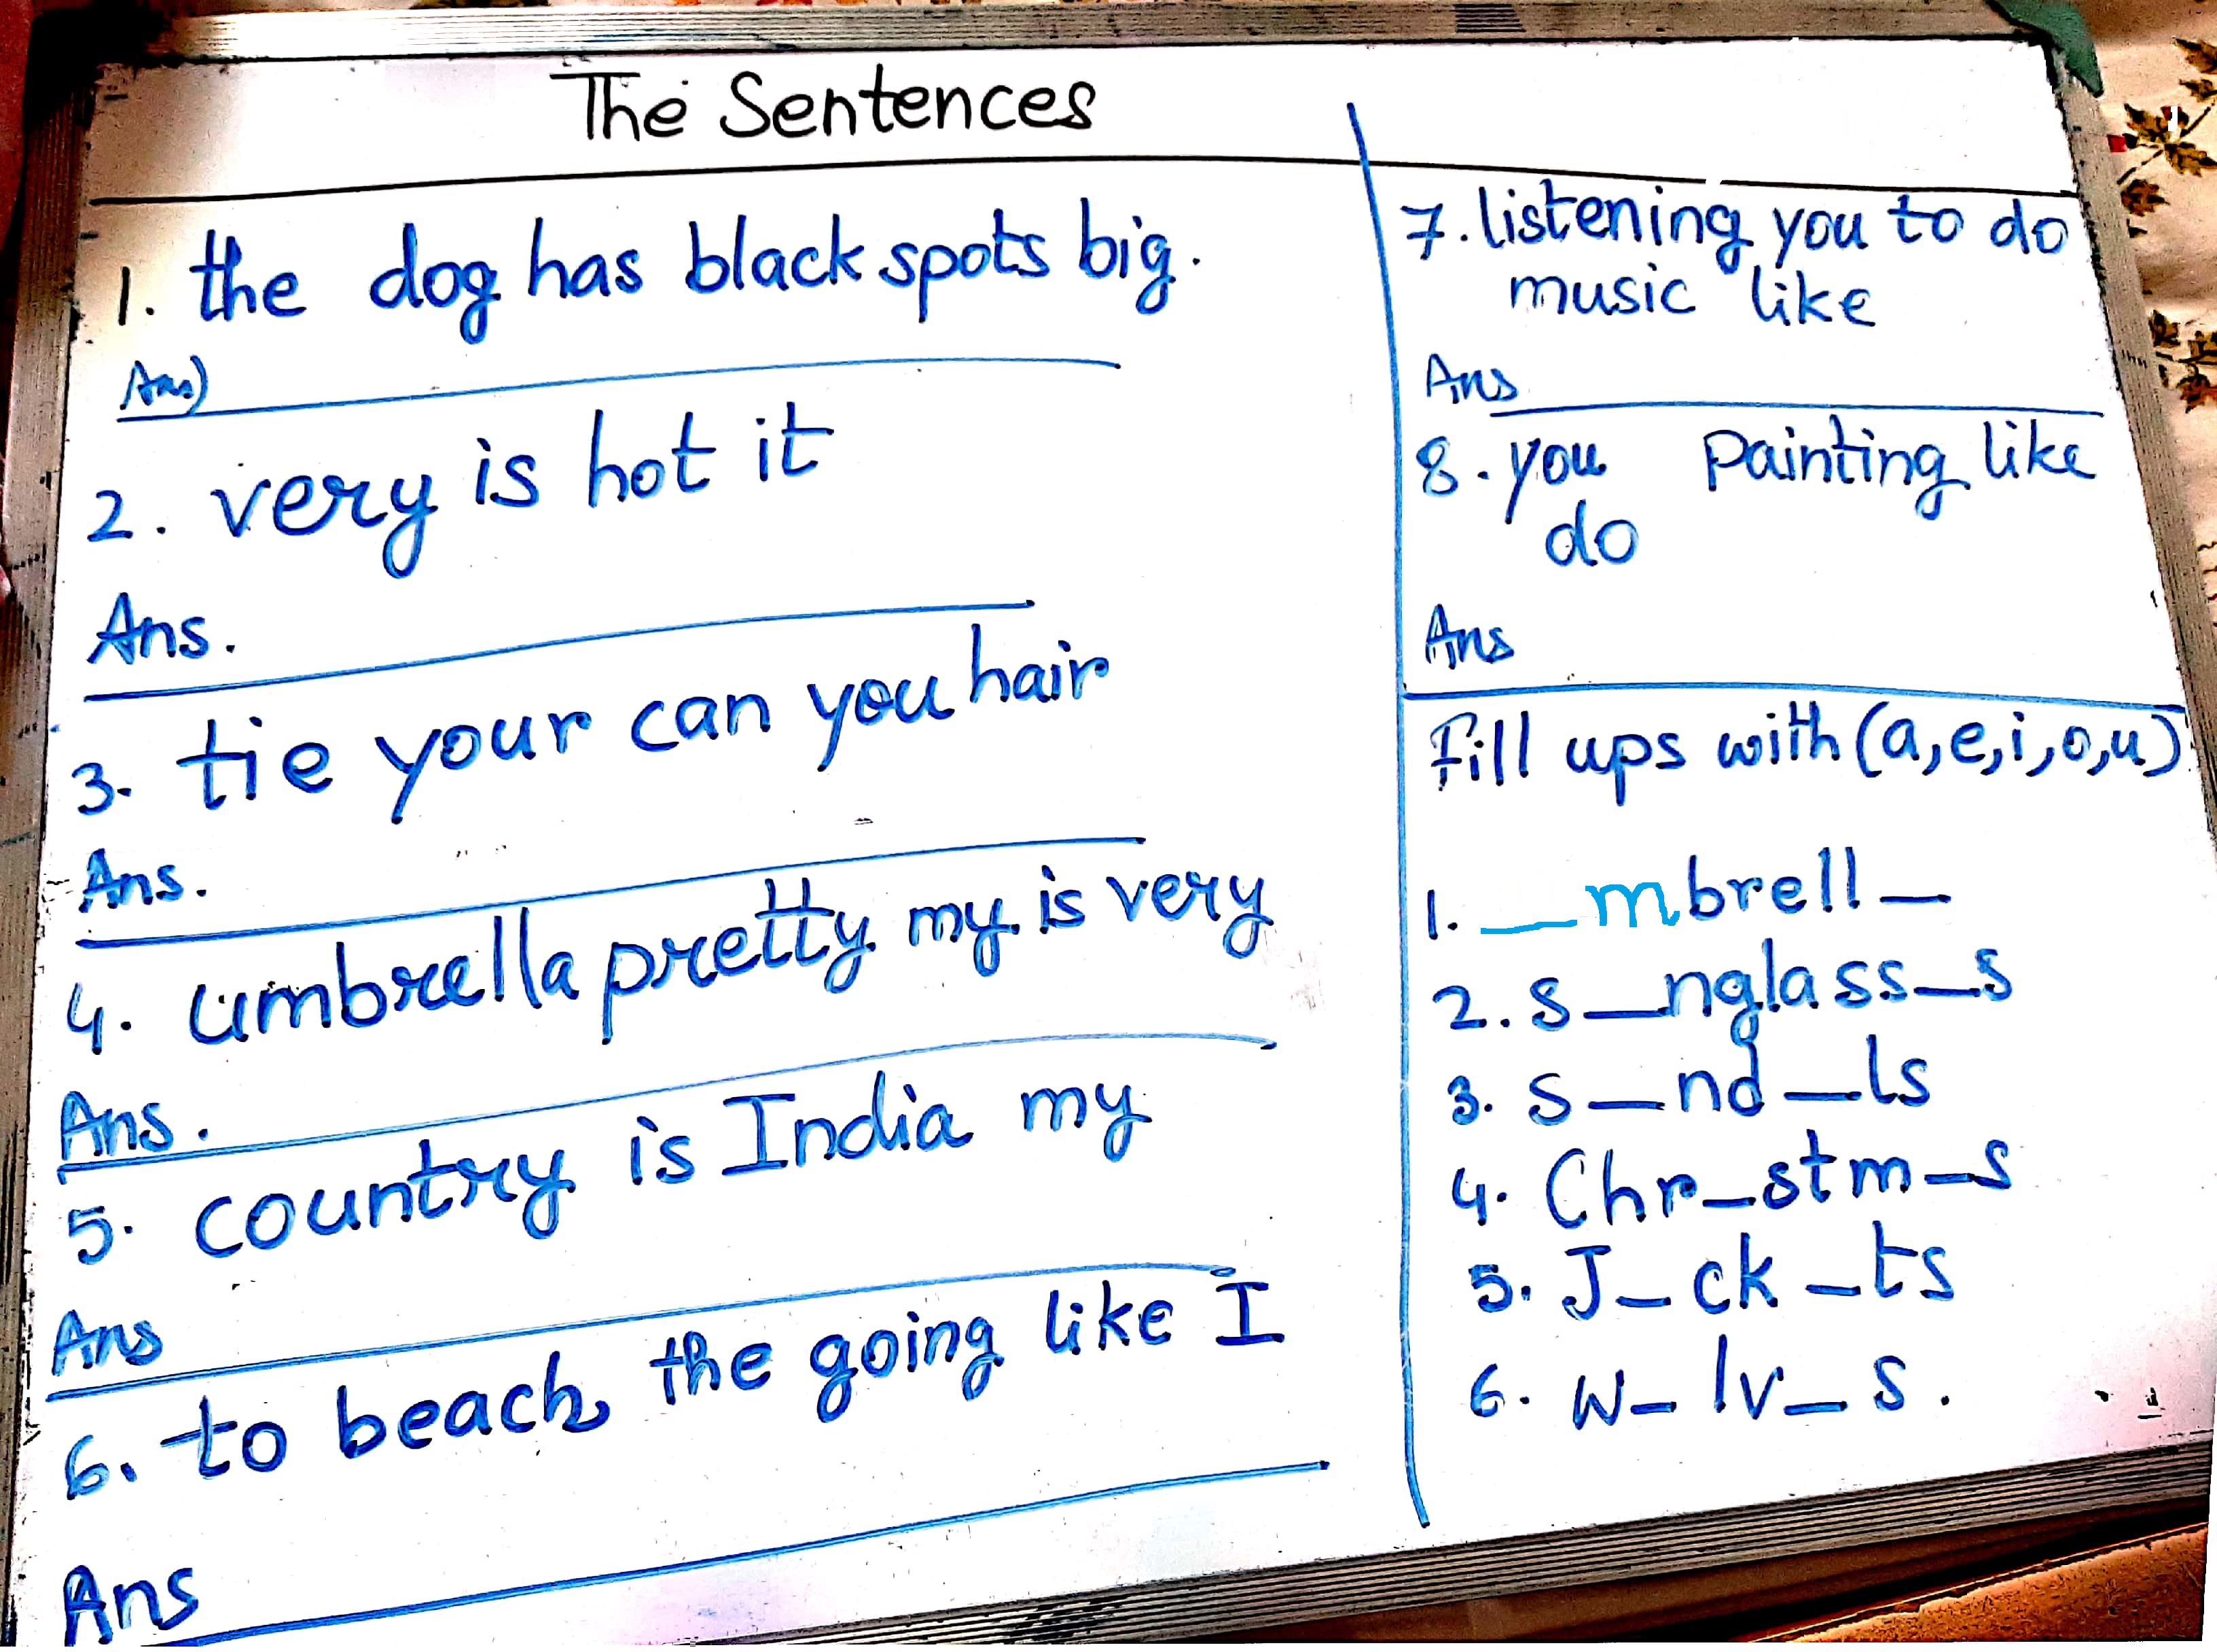 The Sentences
1. the dog has black spots big.
Ans)
2. very is hot it
Ans.
3. tie your can you hair
Ans.
4. umbrella pretty my is very
Ans.
5. country is India my
Ans
6. to beach the going like I
Ans
7. listening you to do
music like
Ans
8. you Painting like
do
Ans
Fill ups with (a,e,i,o,u)
1. _mbrell_
2. s_nglass_s
3. s_nd_ls
4. Chr_stm_s
5. J_ck_ts
6. w_lv_s.